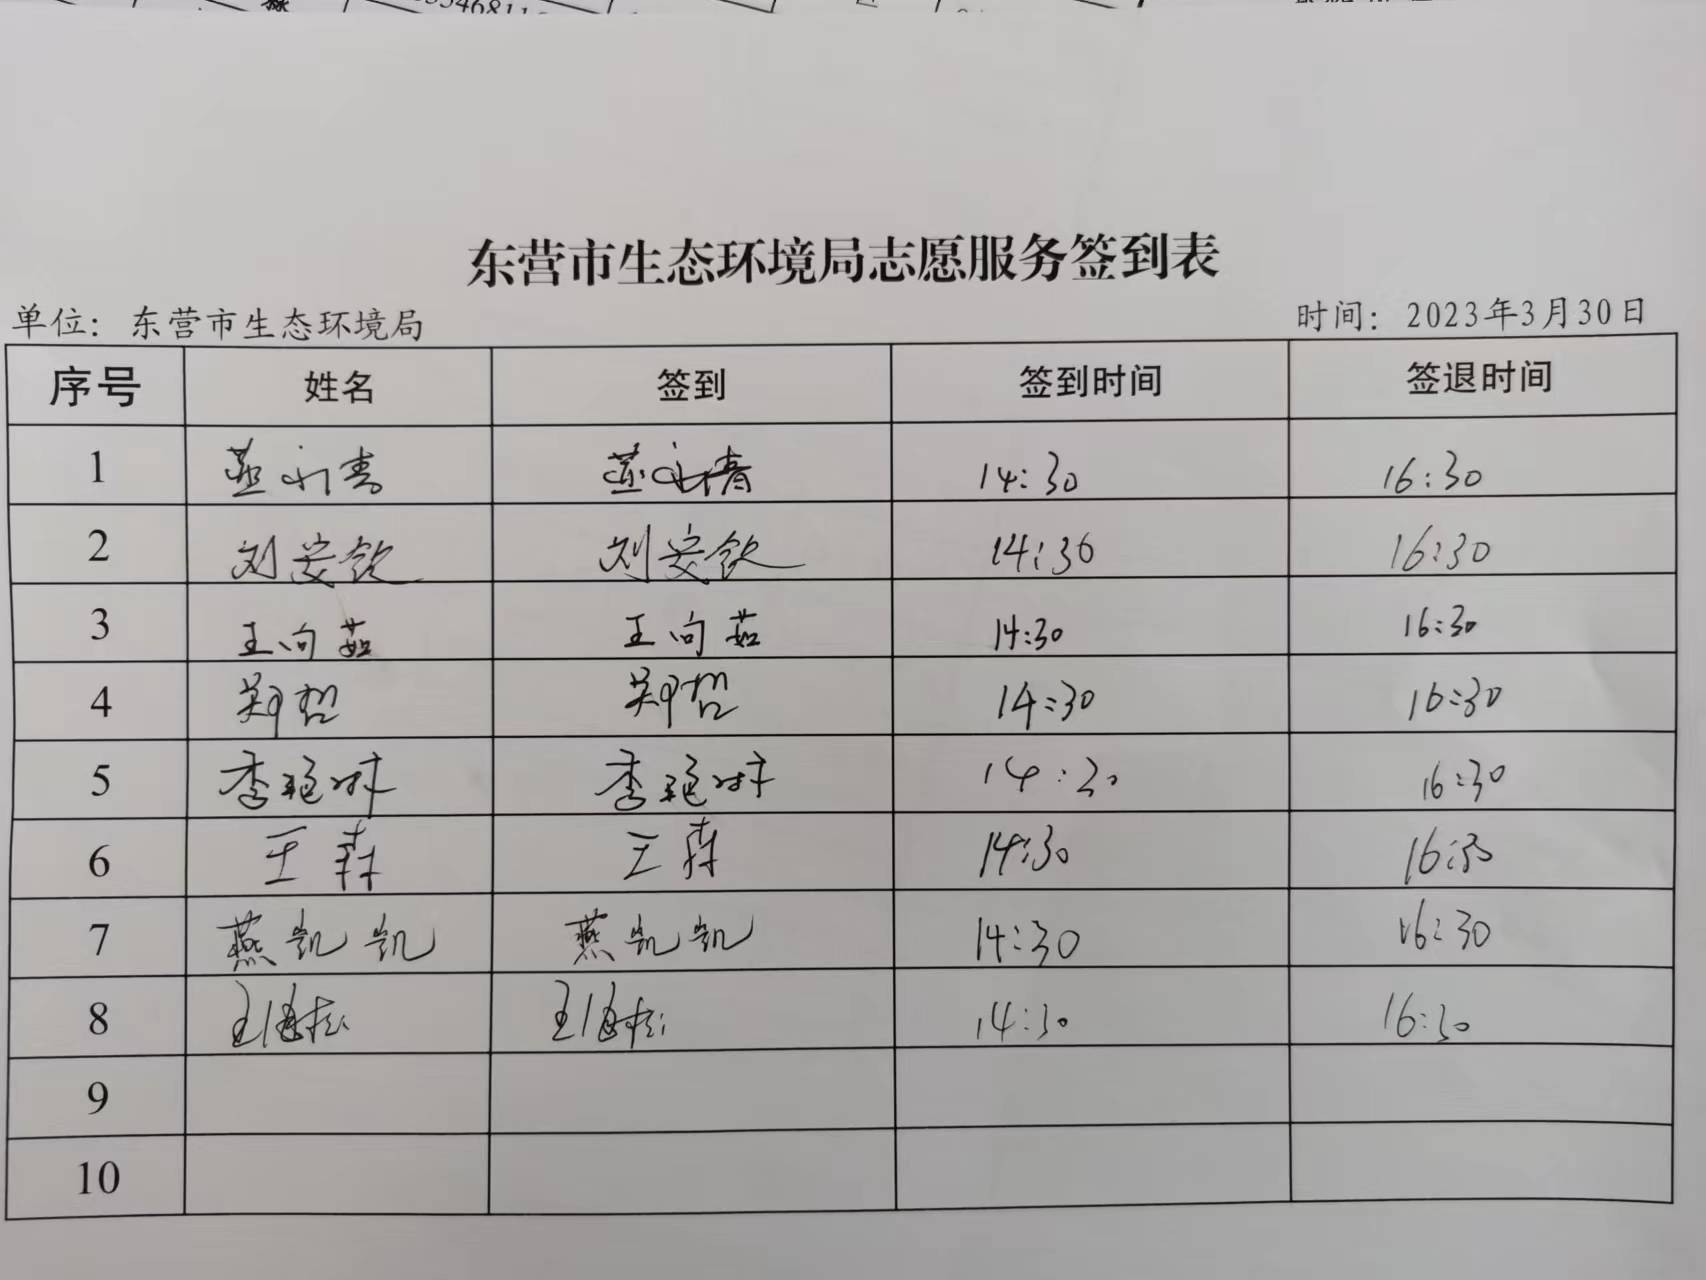 东营市生态环境局志愿服务签到表
单位：东营市生态环境局 时间：2023年3月30日
序号 姓名 签到 签到时间 签退时间
1 14:30 16:30
2 刘安钦 刘安钦 14:30 16:30
3 王向茹 王向茹 14:30 16:30
4 郑哲 郑哲 14:30 16:30
5 李艳 李艳 14:30 16:30
6 王森 王森 14:30 16:30
7 燕凯凯 燕凯凯 14:30 16:30
8 王海松 王海松 14:30 16:30
9
10